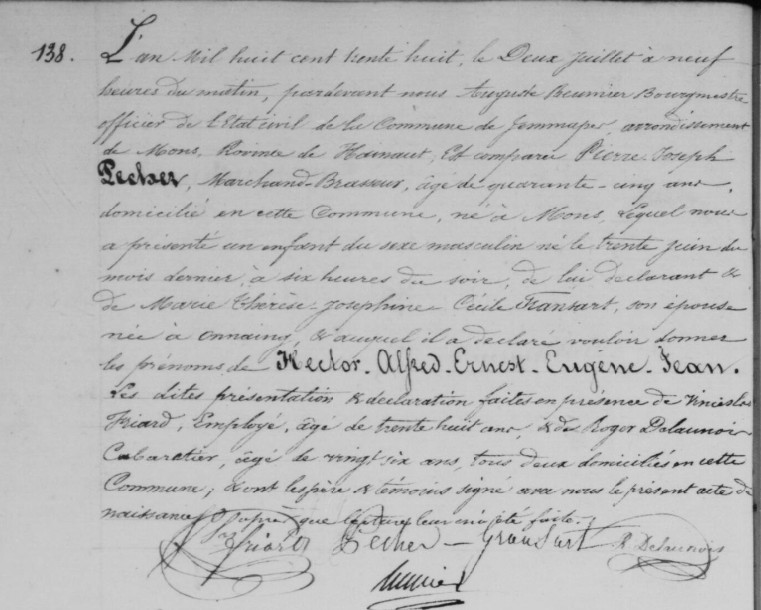 138. L'an Mil huit cent trente huit, le Deux Juillet à neuf
heures du matin, pardevant nous Auguste Beumier Bourgmestre
officier de l'Etat civil de la Commune de Jemmapes, arrondissement
de Mons, Province de Hainaut, Est comparu Pierre-Joseph
Pecher, Marchand-Brasseur, âgé de quarante-cinq ans,
domicilié en cette Commune, né à Mons, Lequel nous
a présenté un enfant du sexe masculin né le trente juin du
mois dernier, à six heures du soir, de lui déclarant &
de Marie Thérèse-Josephine-Cécile Fransart, son épouse
née à Onnaing, & auquel il a déclaré vouloir donner
les prénoms de Hector-Alfred-Ernest-Eugène-Jean.
Les dites présentation & déclaration faites en présence de
Friard, Employé, âgé de trente huit ans, & de Roger Delaunois
Cabaretier, âgé de vingt six ans, tous deux domiciliés en cette
Commune; & ont les père & témoins signé avec nous le présent acte de
naissance après que lecture leur en a été faite.
Friard Pecher-Fransart R Delaunois